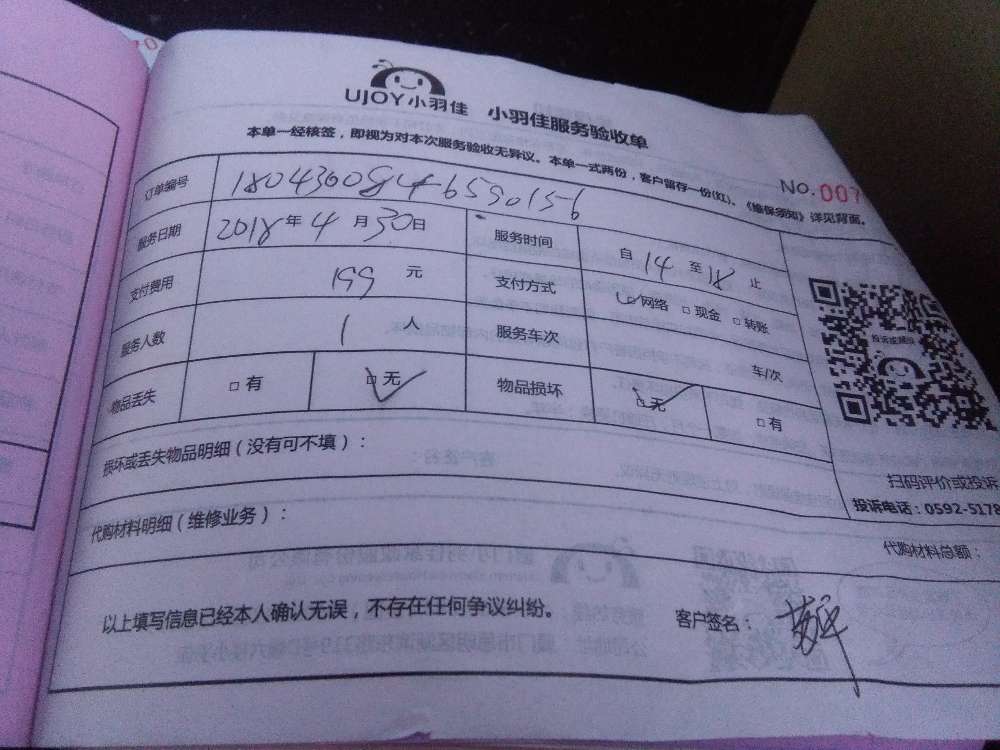 UJOY小羽佳 小羽佳服务验收单
本单一经核签，即视为对本次服务验收无异议。本单一式两份，客户留存一份(红)。《维保须知》详见背面。
No. 007
订单编号
服务日期 2018年4月30日 服务时间 自14至18止
支付费用 199元 支付方式 网络 □现金 □转账
服务人数 1人 服务车次 车/次
物品丢失 □有 □无 物品损坏 □无 □有
损坏或丢失物品明细（没有可不填）：
扫码评价或投诉
投诉电话：0592-5178
代购材料明细（维修业务）：
代购材料总额：
以上填写信息已经本人确认无误，不存在任何争议纠纷。 客户签名：